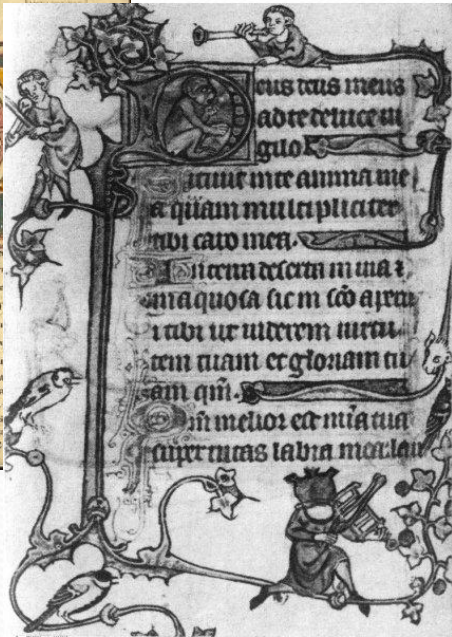 Deus deus meus
ad te de luce vi
gilo
Sitivit in te anima me
a quam multipliciter
tibi caro mea.
In terra deserta in via ⁊
inaquosa sic in sco aparu
i tibi ut viderem virtu
tem tuam et gloriam tu
am qm̄.
Qm̄ melior est mīa tua
super vitas labia mea lau